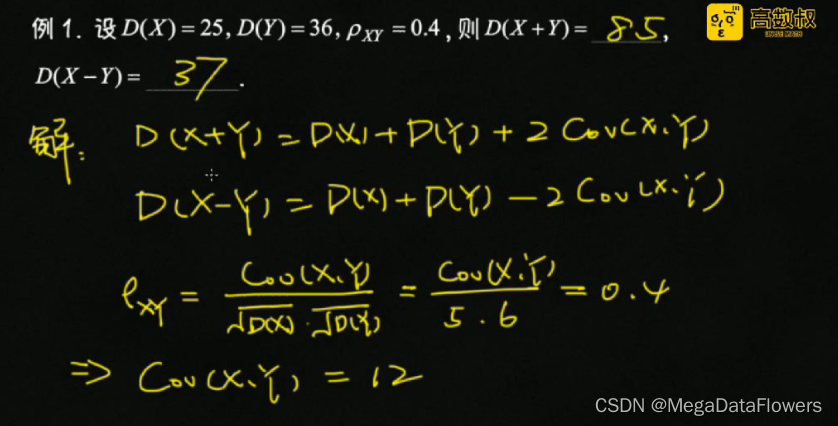 例 1. 设 D(X)=25, D(Y)=36, ρ_XY=0.4, 则 D(X+Y)= 85,
高数叔
D(X−Y)= 37.
解: D(X+Y) = D(X) + D(Y) + 2 Cov(X,Y)
D(X−Y) = D(X) + D(Y) − 2 Cov(X,Y)
ρ_XY = Cov(X,Y) / √D(X) · √D(Y) = Cov(X,Y) / 5·6 = 0.4
⇒ Cov(X,Y) = 12
CSDN @MegaDataFlowers